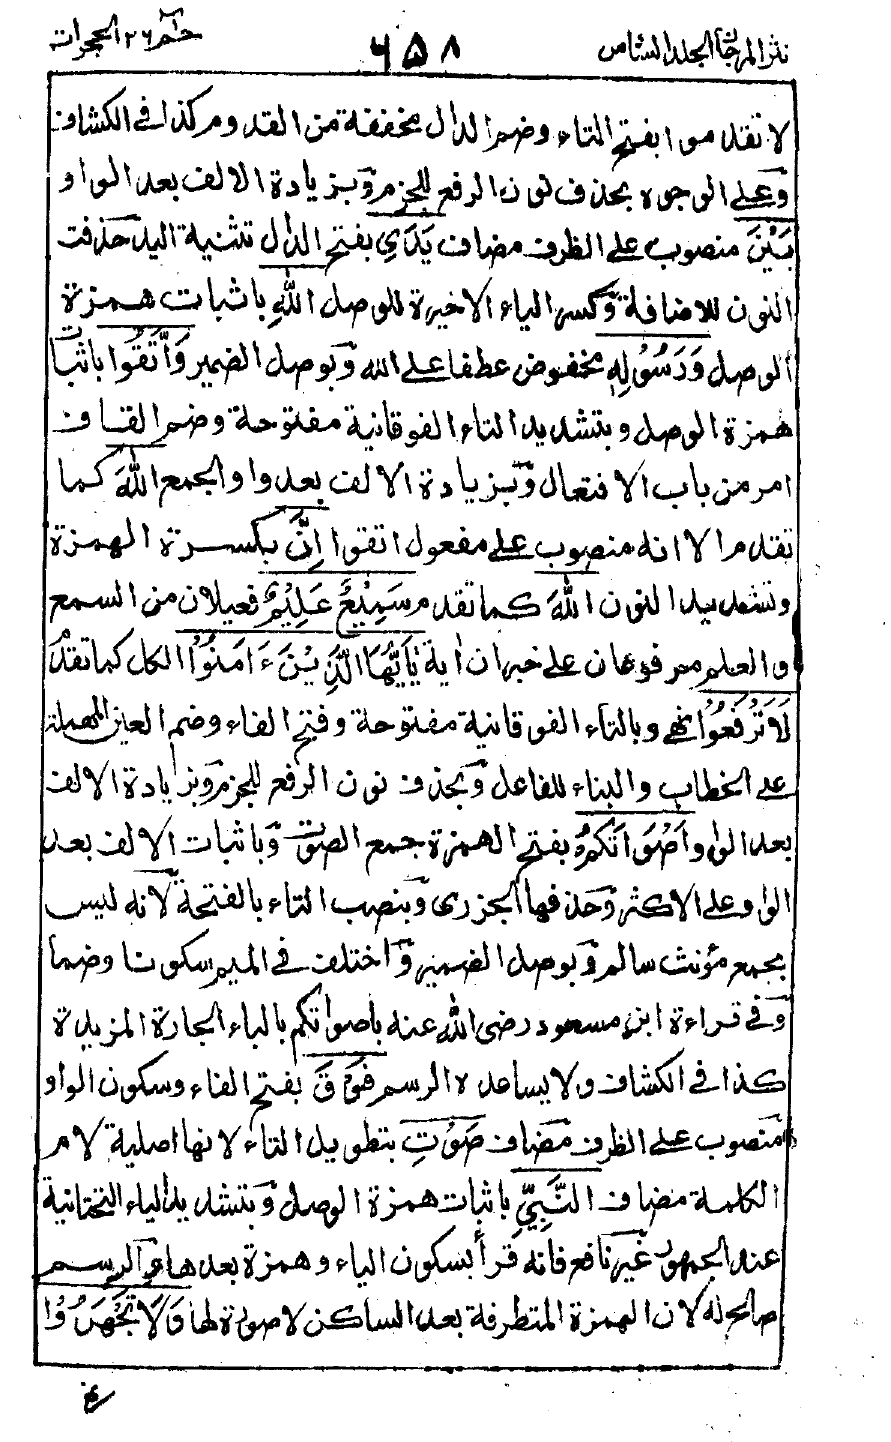 نثر المرجان الجلد السادس ٦٥٨ حٰم ٢٦ الحجرات
لا تقدموا بفتح التاء وضم الدال مخففة من القدوم كذا في الكشاف
وعلى الوجوه بحذف نون الرفع للجزم وبزيادة الالف بعد الواو
بَيْنَ منصوب على الظرف مضاف يَدَيِ بفتح الدال تثنية اليد حذفت
النون للاضافة وكسر الياء الاخيرة للوصل اللّٰهِ باثبات همزة
الوصل وَرَسُوْلِهٖ مخفوض عطفا على الله وبوصل الضمير وَاتَّقُوا باثبات
همزة الوصل وبتشديد التاء الفوقانية مفتوحة وضم القاف
امر من باب الافتعال وبزيادة الالف بعد واو الجمع اللّٰهَ كما
تقدم الا انه منصوب على مفعول اتقوا اِنَّ بكسرة الهمزة
وتشديد النون اللّٰهَ كما تقدم سَمِيْعٌ عَلِيْمٌ فعيلان من السمع
والعلم مرفوعان على خبر ان اٰية يٰٓاَيُّهَا الَّذِيْنَ ءَامَنُوْا الكل كما تقدم
لَا تَرْفَعُوْٓا نهي وبالتاء الفوقانية مفتوحة وفتح الفاء وضم العين المهملة
على الخطاب والبناء للفاعل وبحذف نون الرفع للجزم وبزيادة الالف
بعد الواو اَصْوَاتَكُمْ بفتح الهمزة جمع الصوت وباثبات الالف بعد
الواو على الاكثر وحذفها الجزري وبنصب التاء بالفتحة لانه ليس
بجمع مؤنث سالم وبوصل الضمير واختلف في الميم سكونا وضما
وفي قراءة ابن مسعود رضى الله عنه باصواتكم بالباء الجارة المزيدة
كذا في الكشاف ولا يساعده الرسم فَوْقَ بفتح الفاء وسكون الواو
منصوب على الظرف مضاف صَوْتِ بتطويل التاء لانها اصلية لام
الكلمة مضاف النَّبِيِّ باثبات همزة الوصل وبتشديد الياء التحتانية
عند الجمهور غير نافع فانه قرأ بسكون الياء وهمزة بعدها والرسم
صالح له لان الهمزة المتطرفة بعد الساكن لا صورة لها وَلَا تَجْهَرُوْا